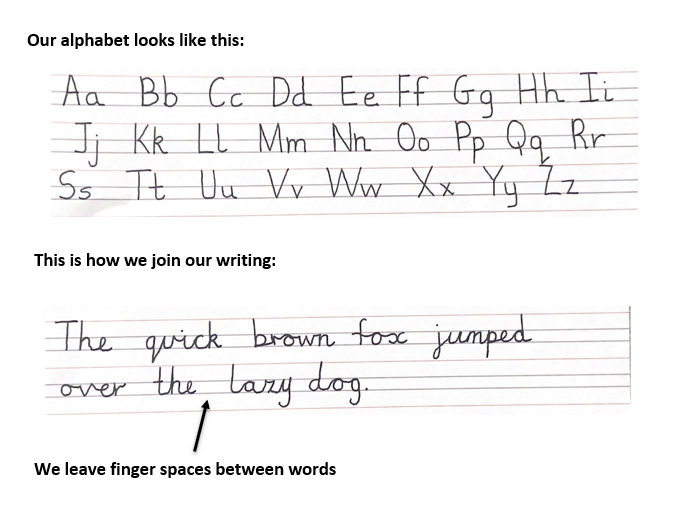 Our alphabet looks like this:
Aa Bb Cc Dd Ee Ff Gg Hh Ii
Jj Kk Ll Mm Nn Oo Pp Qq Rr
Ss Tt Uu Vv Ww Xx Yy Zz
This is how we join our writing:
The quick brown fox jumped
over the lazy dog.
We leave finger spaces between words